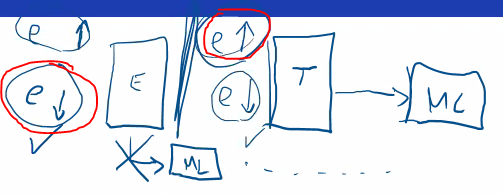 e ↑
e ↑
E
T
e ↓
e ↓
ML
ML